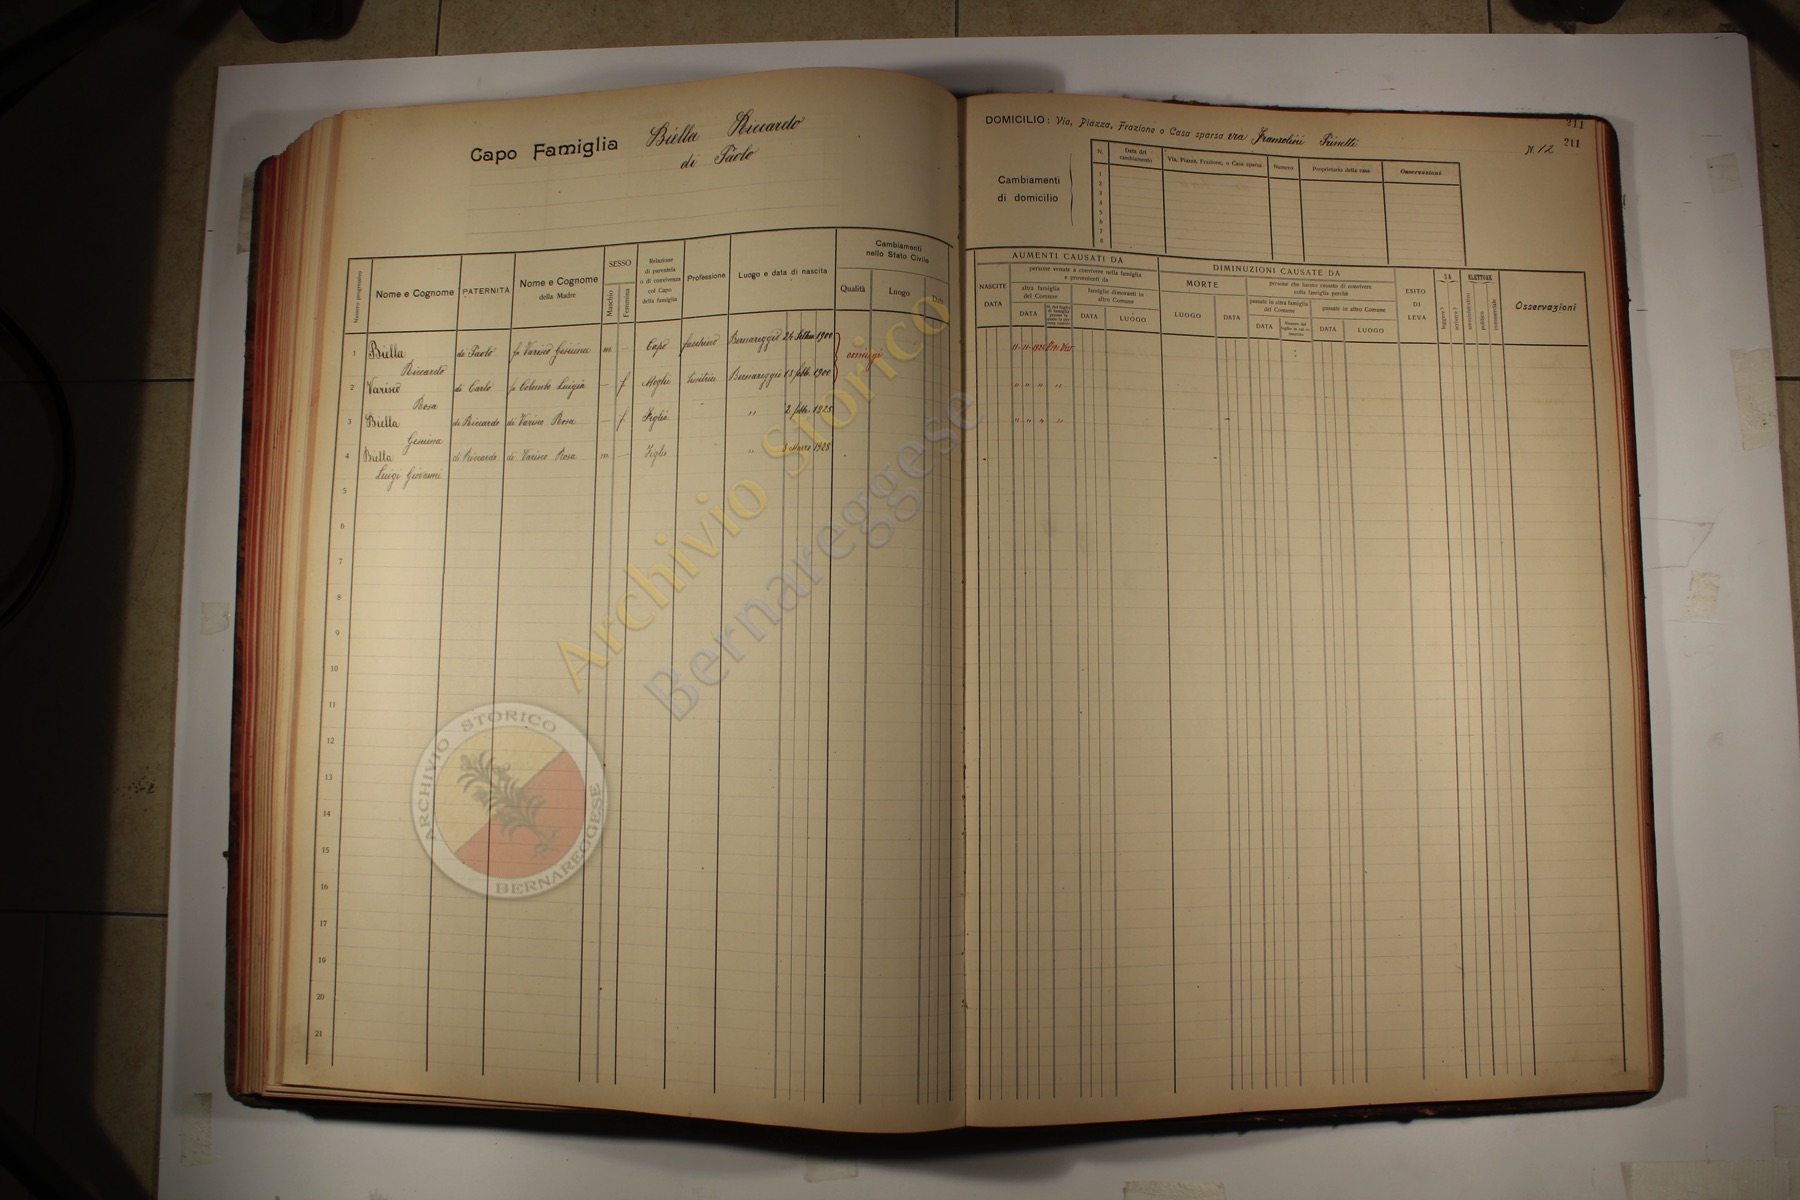 Capo Famiglia Biella Riccardo
di Paolo
Numero progressivo
Nome e Cognome
PATERNITÀ
Nome e Cognome
della Madre
SESSO
Maschio
Femmina
Relazione
di parentela
o di convivenza
col Capo
della famiglia
Professione
Luogo e data di nascita
Cambiamenti
nello Stato Civile
Qualità
Luogo
Data
1 Biella di Paolo fu Varisco Gesuina m - Capo facchino Bernareggio 24 1900 coniugi
Riccardo
2 Varisco di Carlo fu Colombo Luigia - f Moglie Bernareggio 13 febb. 1900
Rosa
3 Biella di Riccardo di Varisco Rosa - f Figlia " 2 febb. 1925
Gesuina
4 Biella di Riccardo di Varisco Rosa m - Figlio " 3 Marzo 1928
Luigi Giovanni
5
6
7
8
9
10
11
12
13
14
15
16
17
18
19
20
21
211
DOMICILIO: Via, Piazza, Frazione o Casa sparsa via
N. 12
211
Cambiamenti
di domicilio
N.
Data del
cambiamento
Via, Piazza, Frazione, o Casa sparsa
Numero
Proprietario della casa
Osservazioni
1
2
3
4
5
6
7
8
AUMENTI CAUSATI DA
NASCITE
DATA
persone venute a convivere nella famiglia
e provenienti da
altra famiglia
del Comune
DATA
famiglie dimoranti in
altro Comune
DATA
LUOGO
DIMINUZIONI CAUSATE DA
MORTE
LUOGO
DATA
persone che hanno cessato di convivere
nella famiglia perchè
passate in altra famiglia
del Comune
DATA
passate in altro Comune
DATA
LUOGO
ESITO
DI
LEVA
SA
leggere?
scrivere?
ELETTORE
amministrativo
politico
commerciale
Osservazioni
" " " "
" " " "
Archivio Storico
Bernareggese
ARCHIVIO STORICO
BERNAREGGESE